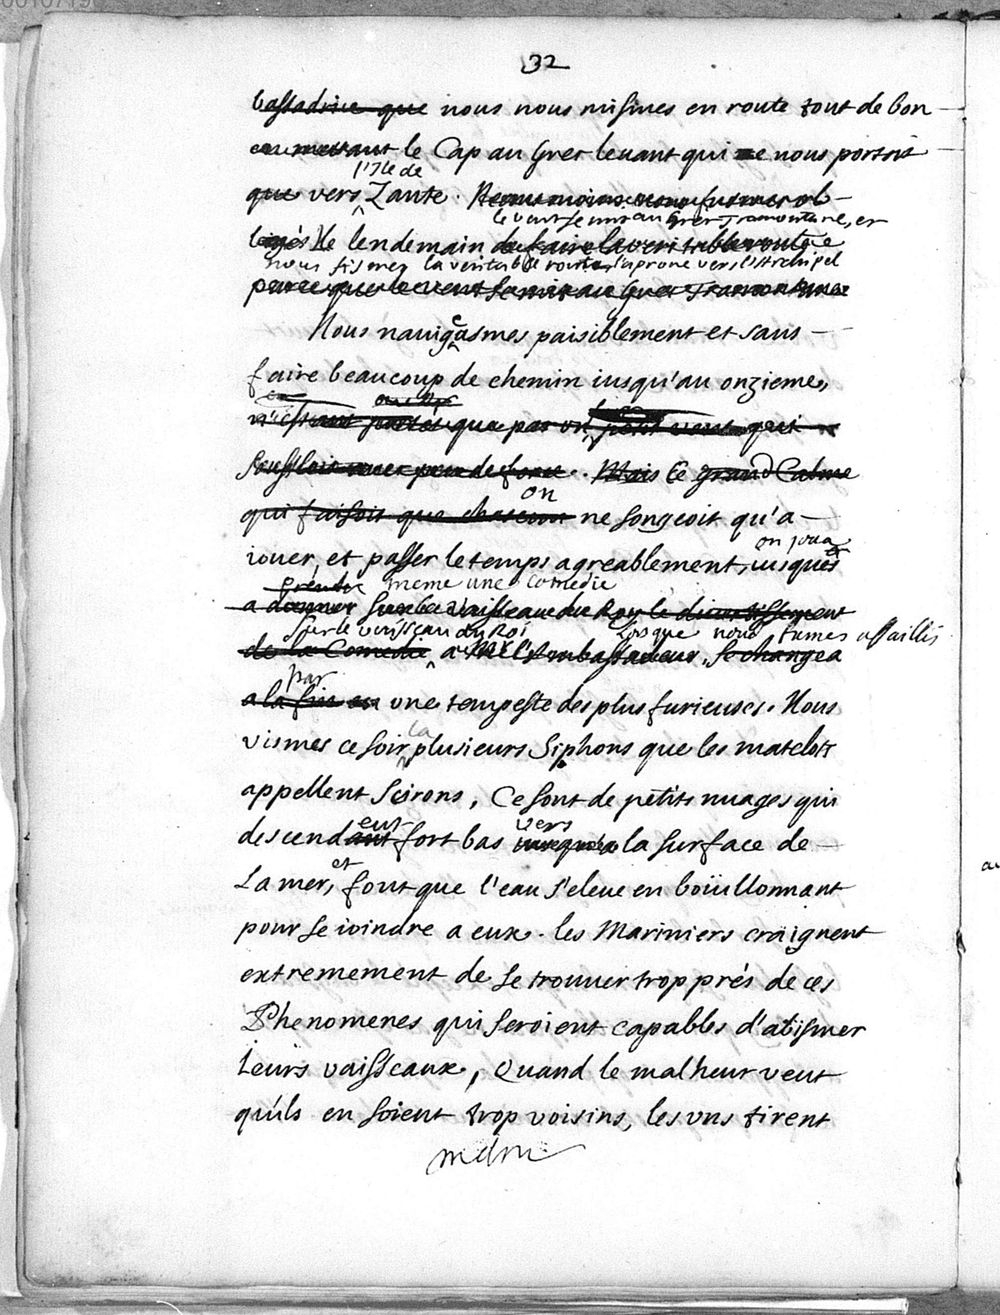 0010719
32
bassadrice que nous nous mismes en route tout de bon
en mettant le Cap au Grec levant qui ne nous portoit
l'Isle de
que vers Zante. Neanmoins nous fusmes ob-
le vent se mit au Grec Tramontane, et
ligés le lendemain de faire la veritable route
nous fismes la veritable route, la proue vers l'Archipel
parce que le vent se mit au Grec Tramontane
Nous navigeasmes paisiblement et sans
faire beaucoup de chemin iusqu'au onzieme,
n'estant portés que par un petit vent qui
souffloit avec peu de force. Mais ce grand Calme
on
qui faisoit que chascun ne songeoit qu'a
on joua
iouer, et passer le temps agreablement, iusques
meme une comedie
a donner sur le Vaisseau du Roy le divertissement
sur le vaisseau du Roi lorsque nous fumes assaillis
de la Comedie a Mr l'Ambassadeur, se changea
par
a la fin en une tempeste des plus furieuses. Nous
la
vismes ce soir plusieurs Siphons que les matelots
appellent Scirons, Ce sont de petits nuages qui
ent vers
descendant fort bas iusques a la surface de
et
La mer, font que l'eau s'eleve en boüillonnant
pour se ioindre a eux. les Mariniers craignent
extremement de se trouver trop prés de ces
Phenomenes qui seroient capables d'abismer
Leurs vaisseaux, Quand le malheur veut
qu'ils en soient trop voisins, les uns tirent